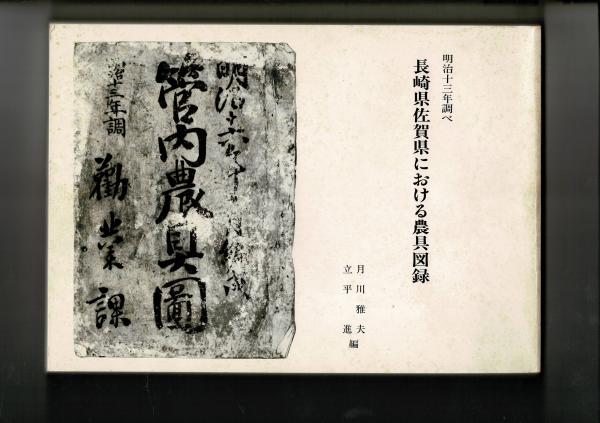 明治十三年調べ
長崎県佐賀県における農具図録
月川雅夫
立平進編
明治十六年十月編成
管内農具圖
治十三年調
勸業課